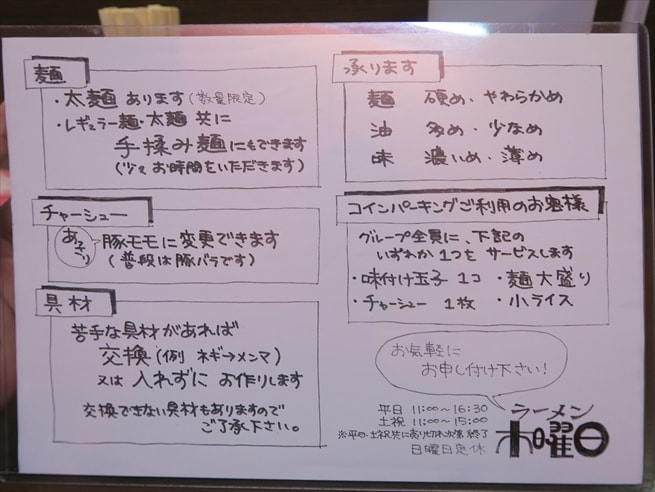 麺
・太麺 あります(数量限定)
・レギュラー麺・太麺 共に
手揉み麺にもできます
(少々お時間をいただきます)
チャーシュー
あっさり
豚モモに変更できます
(普段は豚バラです)
具材
苦手な具材があれば
交換(例 ネギ→メンマ)
又は 入れずに お作りします
交換できない具材もありますので
ご了承下さい。
承ります
麺 硬め・やわらかめ
油 多め・少なめ
味 濃いめ・薄め
コインパーキングご利用のお客様
グループ全員に、下記の
いずれか 1つを サービスします
・味付け玉子 1コ ・麺大盛り
・チャーシュー 1枚 ・小ライス
お気軽に
お申し付け下さい!
平日 11:00〜16:30
土祝 11:00〜15:00
※平日・土祝共に売り切れ次第終了
日曜日定休
ラーメン
木曜日